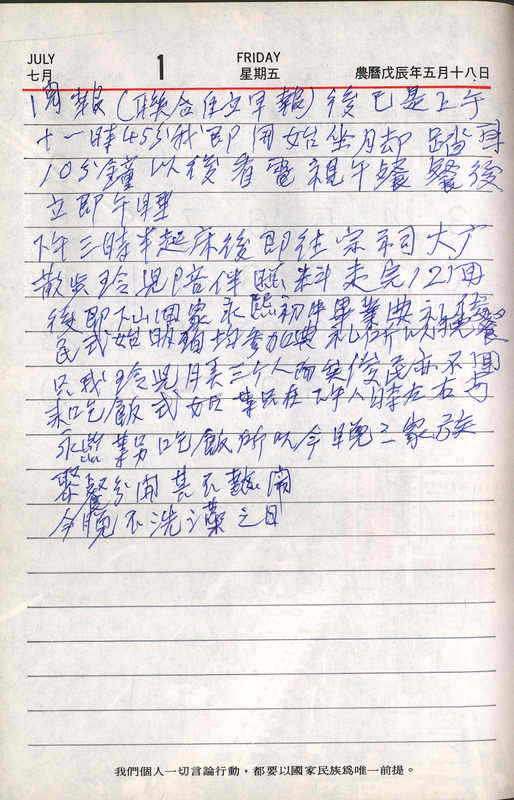 JULY
七月
1
FRIDAY
星期五
農曆戊辰年五月十八日
報(聯合 早報)後已是上午
十一時45分我即開始坐 却踏
10分鐘以後看電視午餐餐後
立即午睡
下午三時半起床後即往宗祠大
散 玲兒陪伴照料走完12 
後即下山回家永熙初中畢業典礼俊
民式如 均參加典礼所以晚餐
只我玲兒 三个人而矣俊民亦不回
来吃飯式如 在下午 時左右与
永熙 吃飯所以今晚 家族
聚餐分開甚不 
今晚不洗澡之日
我們個人一切言論行動,都要以國家民族爲唯一前提。